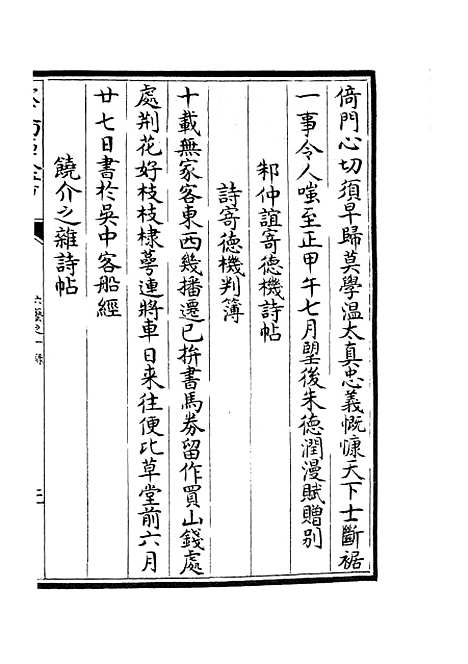 倚門心切須早歸莫學温太真忠義慨慷天下士斷裾
一事令人嗤至正甲午七月朢後朱德潤漫賦贈别
邾仲誼寄德機詩帖
詩寄德機判簿
十載無家客東西幾播遷已拚書馬券留作買山錢處
處荆花好枝枝棣蕚連將車日来往便比草堂前六月
廿七日書於吳中客船經
饒介之雜詩帖
六藝之一録